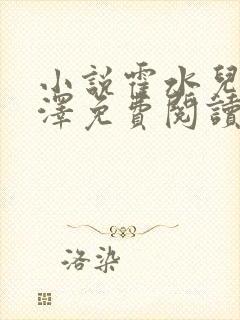 小說霍水兒
澤免費閱讀
洛染